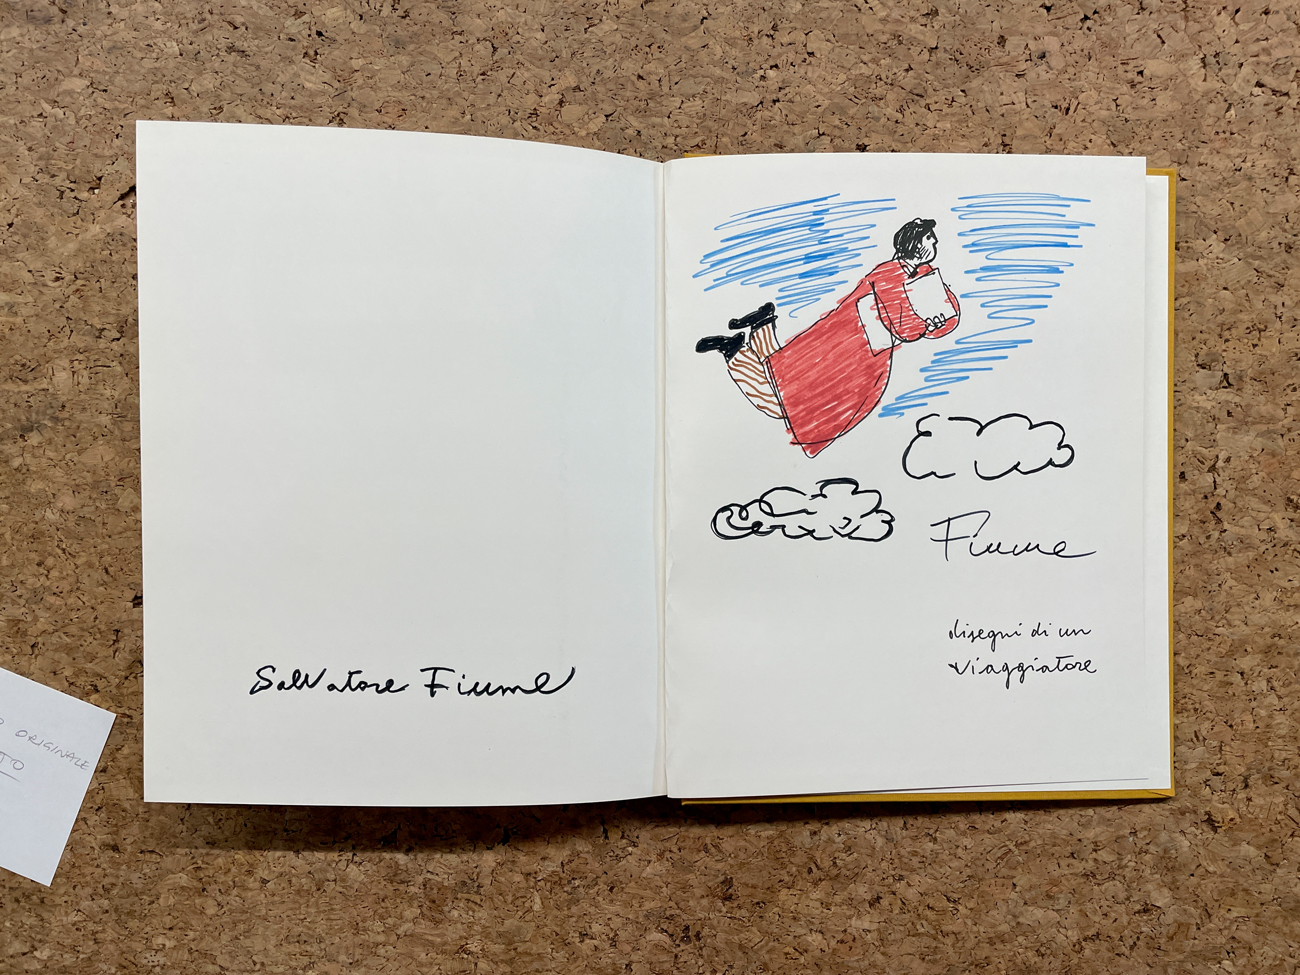 Salvatore Fiume
Fiume
disegni di un
viaggiatore
ORIGINALE